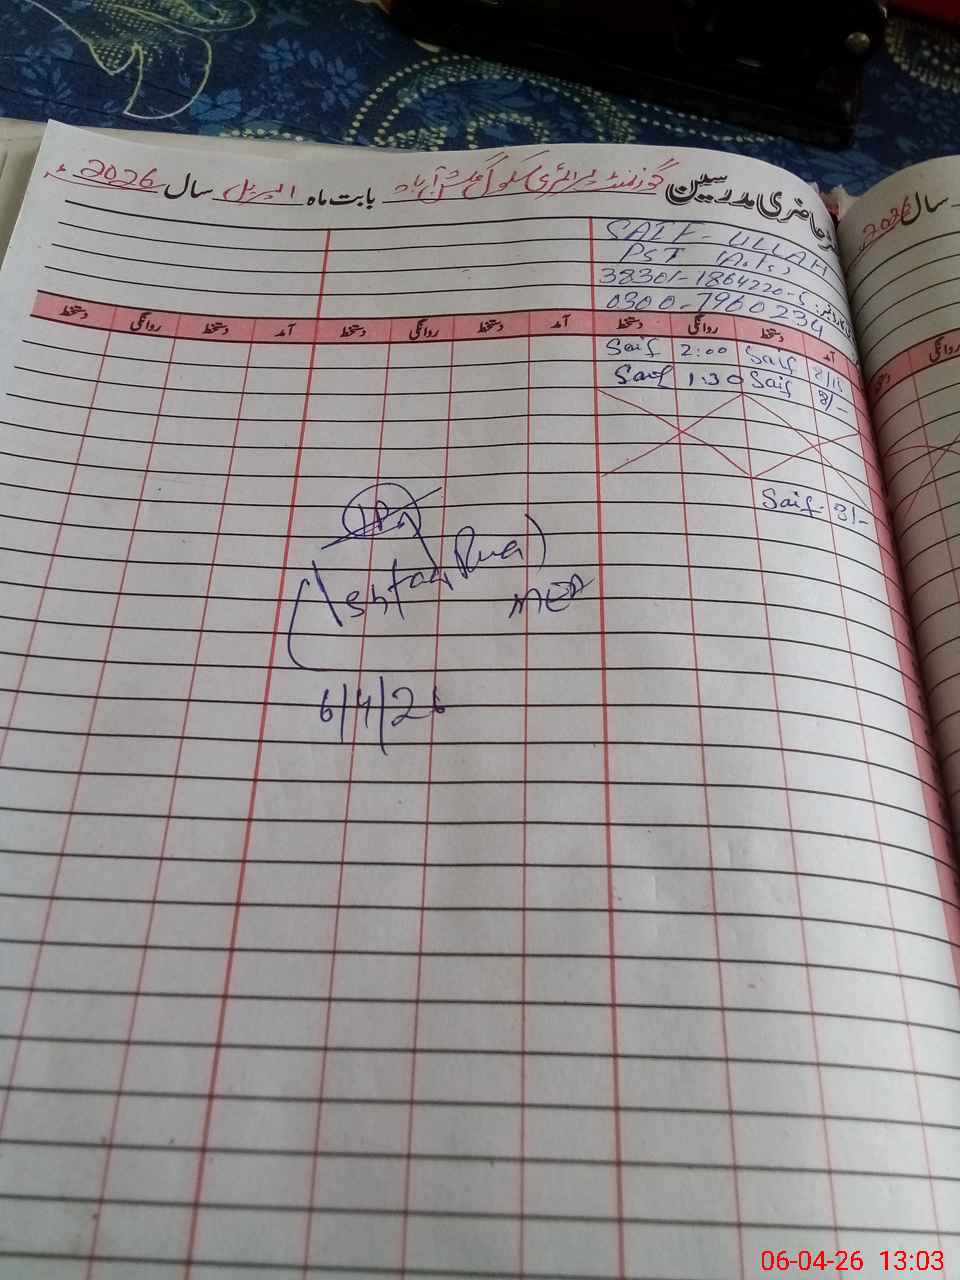 حاضری مدرسین گورنمنٹ پرائمری سکول گلشن آباد بابت ماہ اپریل سال 2026
سال 2026
SAIF-ULLAH
PST
38301-1864220-5
0300-7960234
آمد دستخط روانگی دستخط آمد دستخط روانگی دستخط آمد دستخط روانگی دستخط
روانگی
8/15 Saif 2:00 Saif
8/- Saif 1:30 Saif
8/- Saif
MEA
6/4/26
06-04-26 13:03